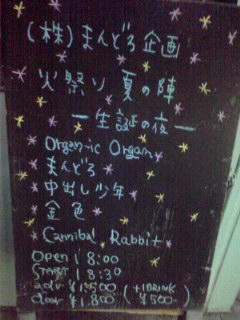 (株)まんどろ企画
火祭り 夏の陣
ー生誕の夜ー
* Organ-ic Organ
* まんどろ
* 中出し少年
* 金色
* Cannibal Rabbit
OPEN 18:00
START 18:30
adv ¥1,500 (+1DRINK
door ¥1,800 ¥500)